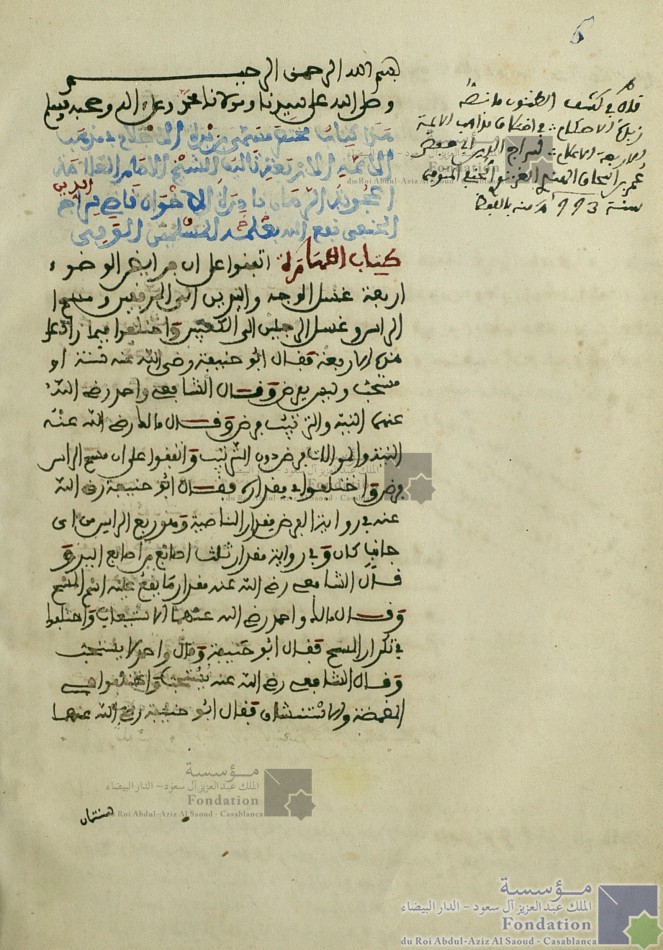 بسم الله الرحمن الرحيم
وصلى الله على سيدنا ومولانا محمد وعلى اله وصحبه وسلم
هذا كتاب مختصر يتضمن زبدة الاحكام في مذهب
الايمة الاربعة تاليف الشيخ الامام العلامة
اعجوبة الزمان نادرة الاخوان قاضي سراج الدين
الحنفي نفع الله بعلمه المسلمين
كتاب الطهارة اتفقوا على ان فرايض الوضوء
اربعة غسل الوجه واليدين الى المرفقين ومسح
الراس وغسل الرجلين الى الكعبين واختلفوا فيما زاد على
هذه الاربعة فقال ابو حنيفة رضي الله عنه سنة او
مستحب وليس بفرض وقال الشافعي واحمد رضي الله
عنهما النية والترتيب فرض وقال مالك رضي الله عنه
النية والموالات فرض دون الترتيب واتفقوا على ان مسح الراس
فرض واختلفوا في مقداره فقال ابو حنيفة رضي الله
عنه في رواية الفرض مقدار الناصية وهو ربع الراس من اي
جانب كان وفي رواية مقدار ثلث اصابع من اصابع اليد و
قال الشافعي رضي الله عنه مقدار ما يقع عليه اسم المسح
وقال مالك واحمد رضي الله عنهما الاستيعاب واختلفوا
في تكرار المسح فقال ابو حنيفة ومالك واحمد لا يستحب
وقال الشافعي رضي الله عنه يستحب واختلفوا في
المضمضة والاستنشاق فقال ابو حنيفة رضي الله عنهما
قال في كشف الظنون ما نصه
زبدة الاحكام في اختلاف مذاهب الايمة
الاربعة الاعلام لسراج الدين ابي حفص
عمر بن اسحاق الغزنوي الحنفي المتوفى
سنة 993
6
مؤسسة
الملك عبد العزيز آل سعود - الدار البيضاء
Fondation
du Roi Abdul-Aziz Al Saoud - Casablanca